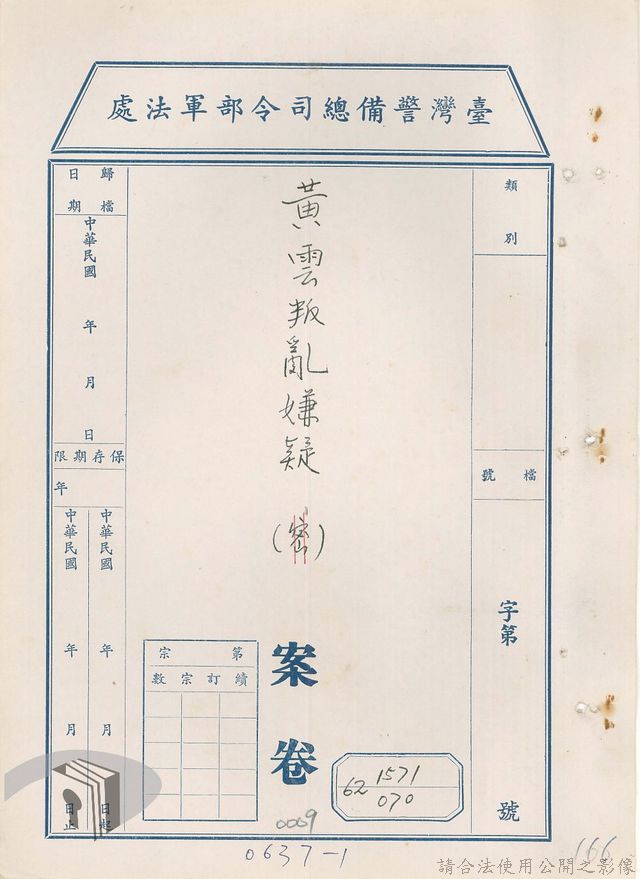 臺灣警備總司令部軍法處
類別
檔號
字第
號
黃雲叛亂嫌疑
(密)
案卷
1571
62
070
第
宗
續訂宗數
歸檔日期
中華民國
年
月
日
保存期限
年
中華民國
年
月
日起
中華民國
年
月
日止
0009
0637-1
166
請合法使用公開之影像